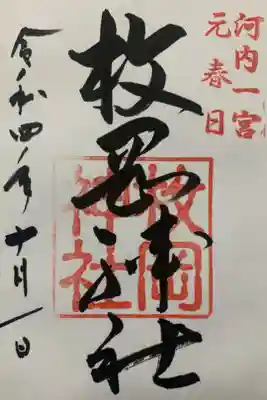 河内一宮
元春日
枚岡神社
枚岡
神社
令和四年十月一日